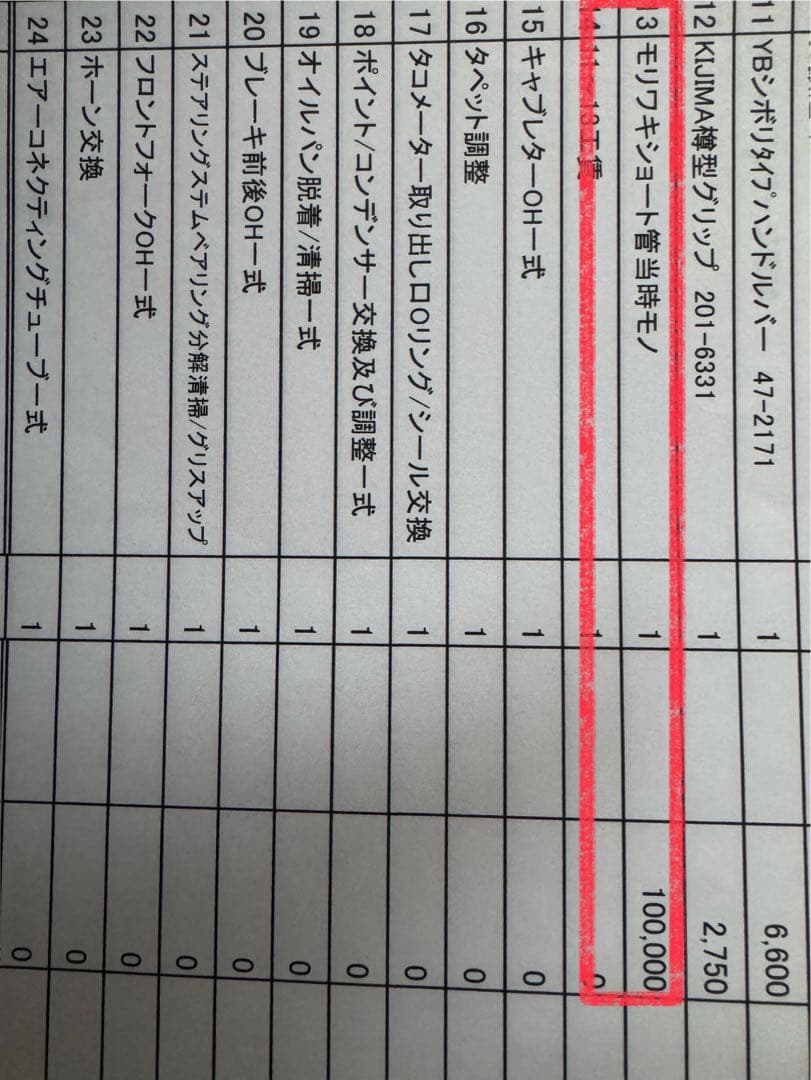 11 YBシボリタイプハンドルバー 47-2171 1 6,600
12 KIJIMA樽型グリップ 201-6331 1 2,750
3 モリワキショート管当時モノ 1 100,000
14 11~13工賃 1 0
15 キャブレターOH一式 1 0
16 タペット調整 1 0
17 タコメーター取り出し口Oリング/シール交換 1 0
18 ポイント/コンデンサー交換及び調整一式 1 0
19 オイルパン脱着/清掃一式 1 0
20 ブレーキ前後OH一式 1 0
21 ステアリングステムベアリング分解清掃/グリスアップ 1 0
22 フロントフォークOH一式 1 0
23 ホーン交換 1 0
24 エアーコネクティングチューブ一式 1 0